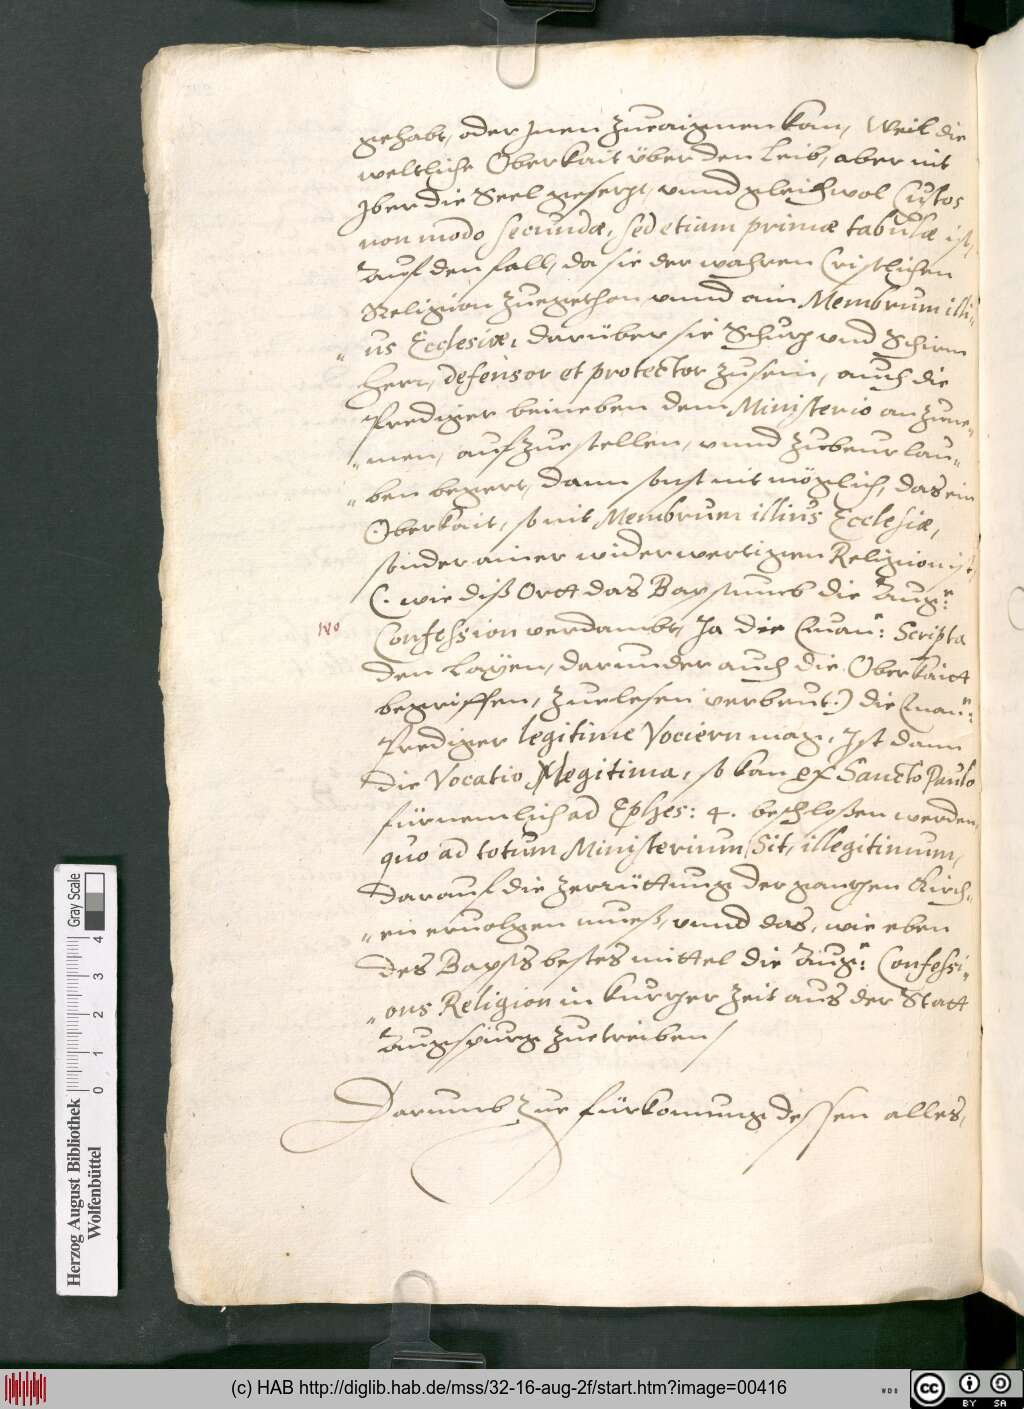 gehabt, oder Jnen zueaignen kan, Weil die
weltliche Oberkait über den Leib, aber nit
Jber die Seel gesetzt, vnnd gleichwol Custos
non modo secundæ, sed etiam primæ tabulæ ist,
Auf den fall, da sie der wahren Cristlichen
Religion zuegethon vnnd ain Membrum illi„
„us Ecclesiæ, darüber sie Schutz vnd Schirm
herr, defensor et protector zusein, auch die
Prediger beineben dem Ministerio anzune„
„men, aufzuestellen, vnnd zubeurlau„
„ben begert, dann sonst nit möglich, das ein
Oberkait, so nit Membrum illius Ecclesiæ,
sonder ainer widerwertigen Religion ist
(. wie diß Ortt das Bapstumb die Aug:
Confession verdambt, Ja die Euan: Scripta
den Layen, darunder auch die Oberkaitt
begriffen, zuelesen verbeut.) die Euan:
Prediger legitime Vociern mag, Ist dann
die Vocatio illegitima, so kan ex Sancto Paulo
fürnemlich ad Ephes: 4. beschloßen werden,
quo ad totum Ministerium Sit, illegitimum,
darauf die zerrüttung der gantzen Kirch„
„en ervolgen mueß, vnnd das, wie eben
des Bapsts bestes mittel die Aug: Confessi„
„ons Religion in kurtzer zeit aus der Statt
Augspurg zuetreiben /
Darumb zue fürkomung dessen alles,
Herzog August Bibliothek
Wolfenbüttel
Gray Scale
0 1 2 3 4
(c) HAB http://diglib.hab.de/mss/32-16-aug-2f/start.htm?image=00416
WDB
CC BY SA